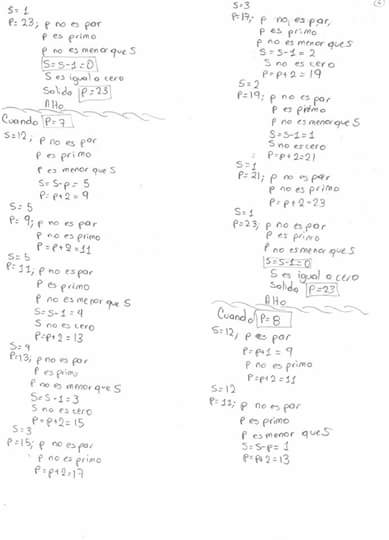 S=1
P=23; p no es par
p es primo
p no es menor que S
S=S-1=0
S es igual a cero
Salida p=23
Alto
Cuando p=7
S=12; p no es par
p es primo
p es menor que S
S=S-p=5
P=p+2=9
S=5
P=9; p no es par
p no es primo
P=p+2=11
S=5
P=11; p no es par
p es primo
p no es menor que S
S=S-1=4
S no es cero
P=p+2=13
S=4
P=13; p no es par
p es primo
p no es menor que S
S=S-1=3
S no es cero
P=p+2=15
S=3
P=15; p no es par
p no es primo
P=p+2=17
S=3
P=17; p no es par,
p es primo
p no es menor que S
S=S-1=2
S no es cero
P=p+2=19
S=2
P=19; p no es par
p es primo
p no es menor que S
S=S-1=1
S no es cero
P=p+2=21
S=1
P=21; p no es par
p no es primo
P=p+2=23
S=1
P=23; p no es par
p es primo
p no es menor que S
S=S-1=0
S es igual a cero
Salida p=23
Alto
Cuando p=8
S=12; p es par
P=p+1=9
p no es primo
P=p+2=11
S=12
P=11; p no es par
p es primo
p es menor que S
S=S-p=1
P=p+2=13